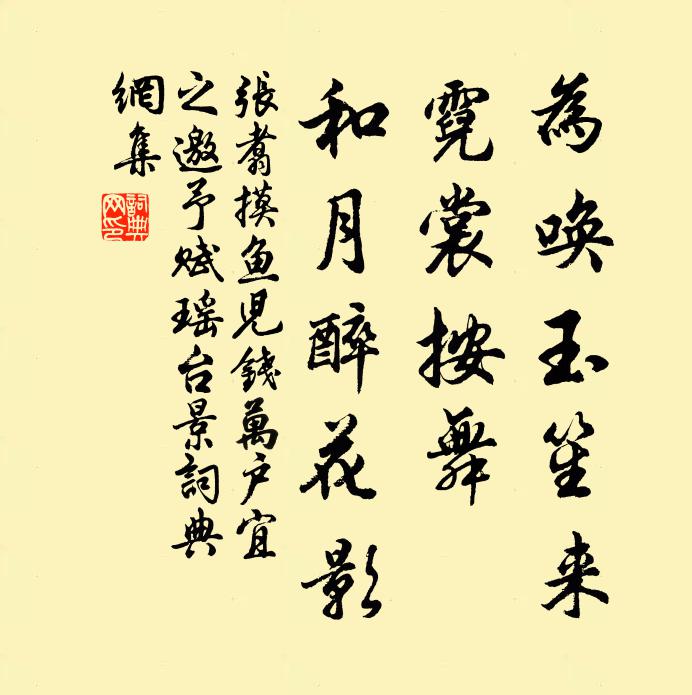 為唤玉笙来
霓裳按舞
和月醉花影
張翥摸鱼児錢萬户宜
之邀予赋瑶台景詞典
網集
詞典
网印